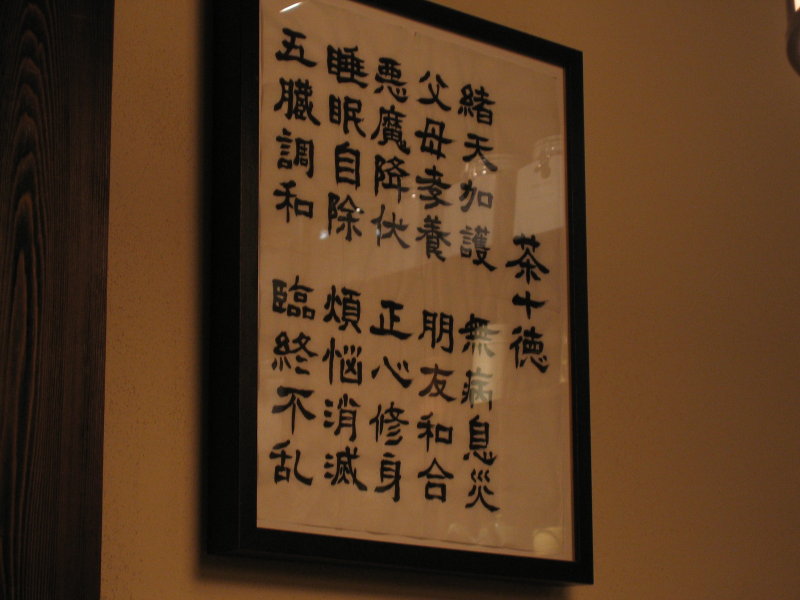 茶十徳
緒天加護 無病息災
父母孝養 朋友和合
悪魔降伏 正心修身
睡眠自除 煩悩消滅
五臓調和 臨終不乱